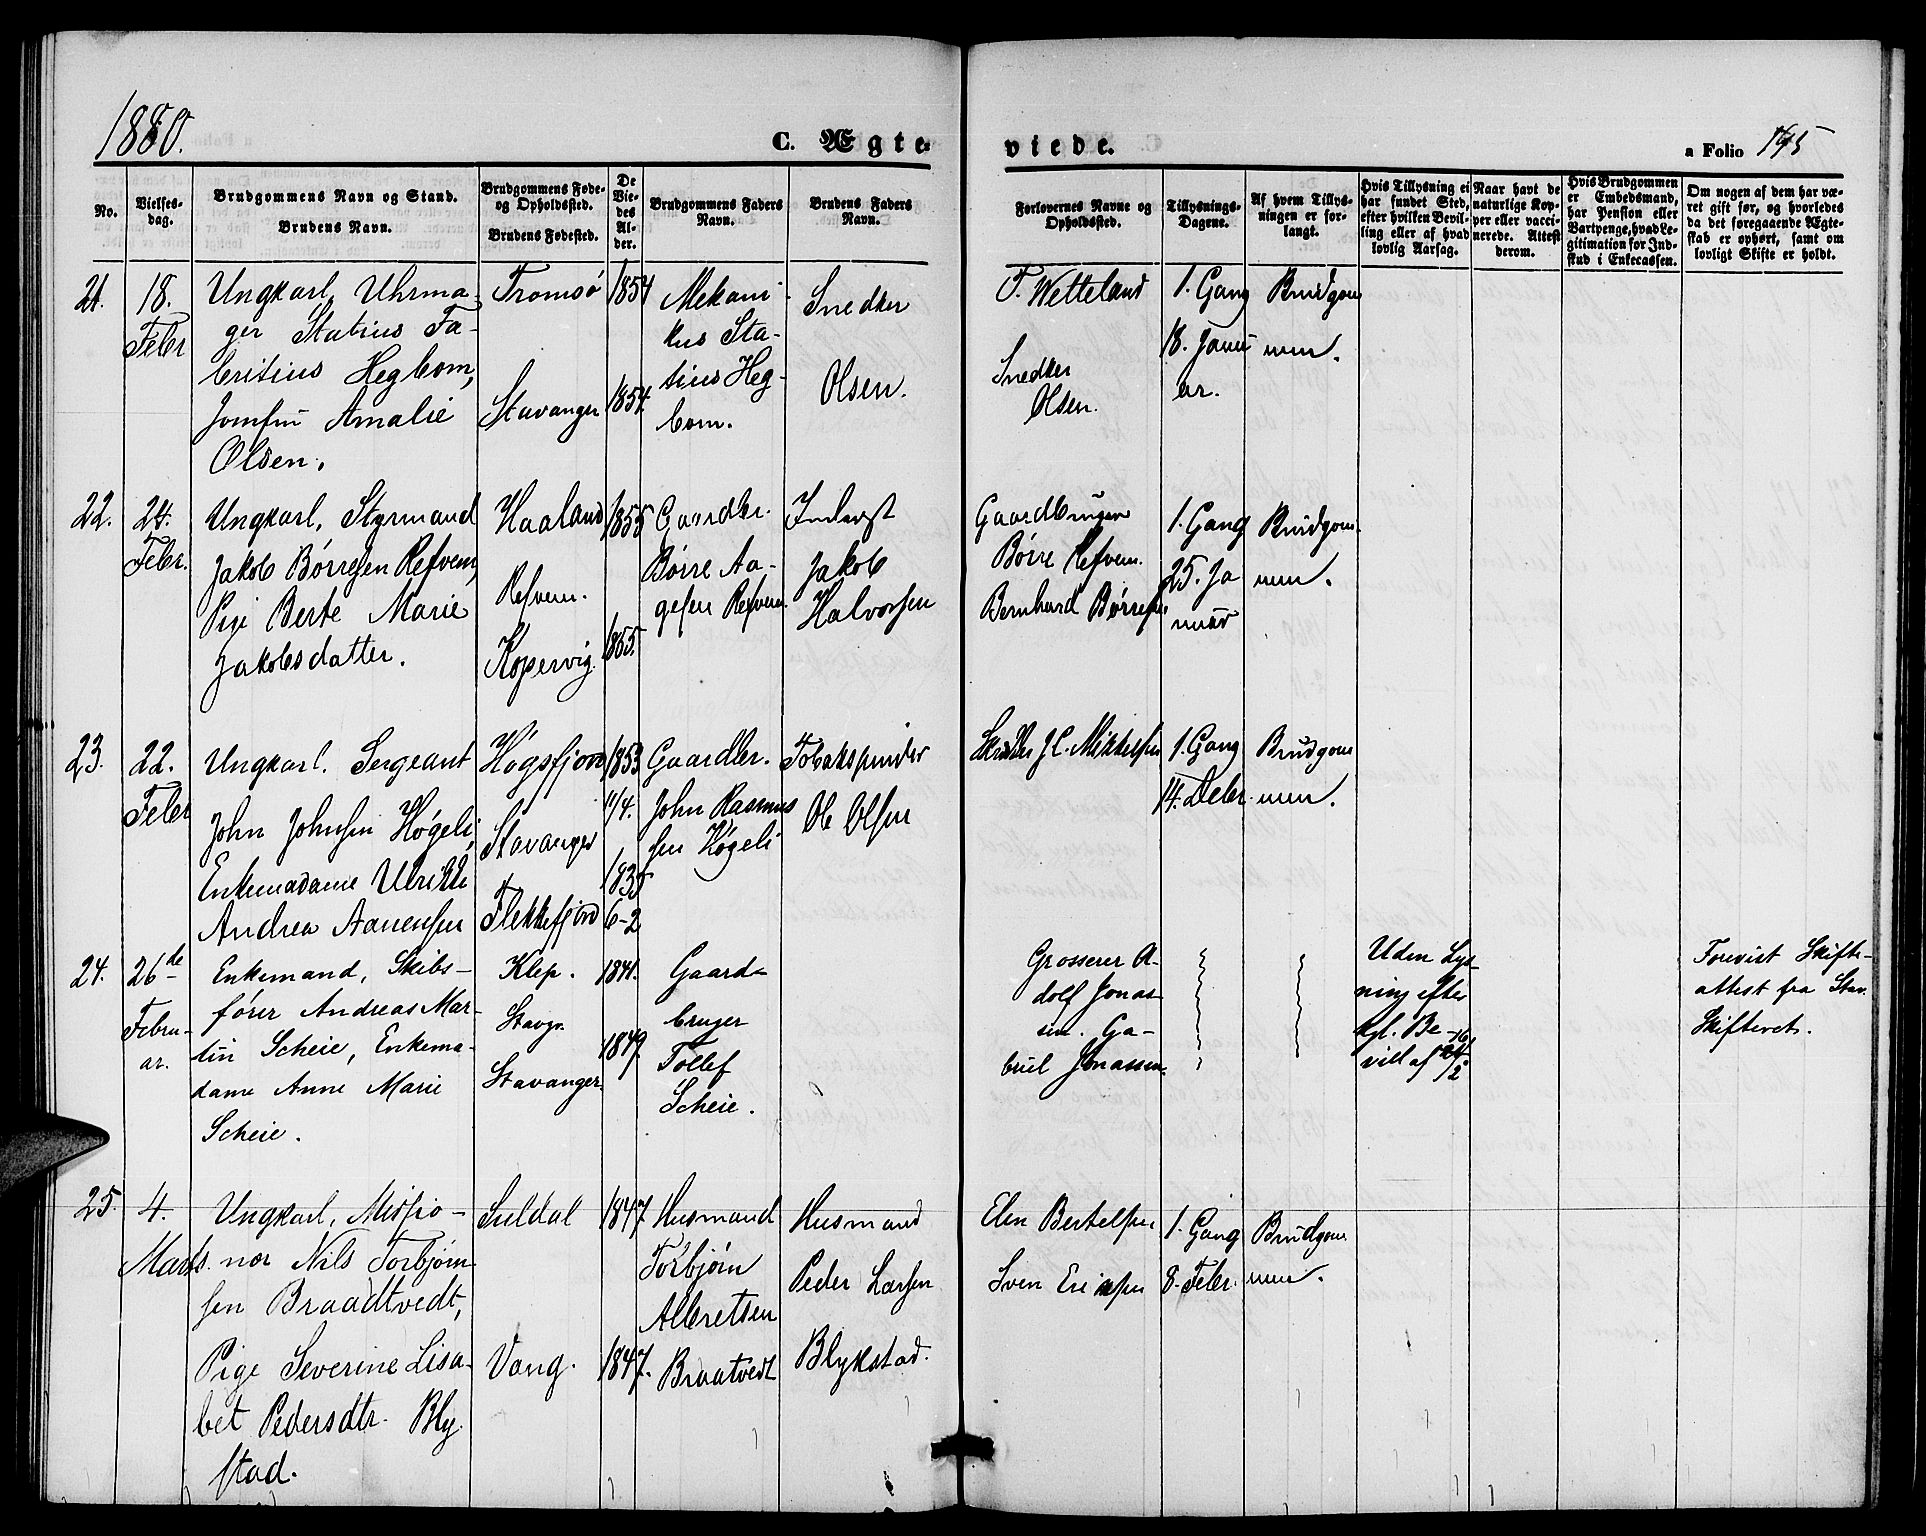 1880.
C. Ægte
viede.
a Folio 195
No.
Vielses-
dag.
Brudgommens Navn og Stand.
Brudens Navn.
Brudgommens Føde-
og Opholdssted.
Brudens Fødested.
De
Vie-
des
Al-
der.
Brudgommens Faders
Navn.
Brudens Faders
Navn.
Forlovernes Navne og
Opholdssted.
Tillysnings-
Dagene.
Af hvem Tillys-
ningen er for-
langt.
Hvis Tillysning ei
har fundet Sted,
efter hvilken Bevil-
ling eller af hvad
lovlig Aarsag.
Naar havt de
naturlige Kop-
per eller vacci-
nerede. Attest
derom.
Hvis Brudgommen
er Embedsmand,
har Pension eller
Vartpenge, hvad Le-
gitimation for Ind-
skud i Enkecassen.
Om nogen af dem har væ-
ret gift før, og hvorledes
da det foregaaende Ægte-
skab er ophørt, samt om
lovligt Skifte er holdt.
21.
18.
Febr
Ungkarl, Uhrma-
ger Statius Fa-
britius Hegbom,
Jomfru Amalie
Olsen.
Tromsø
Stavanger
1854
1854.
Mekani-
kus Sta-
tius Heg-
bom.
Snedker
Olsen.
T. Wetteland
Snedker
Olsen.
1. Gang
18. Janu
ar.
Brudgom
men.
22.
24.
Febr.
Ungkarl, Styrmand
Jakob Børresen Refvem,
Pige Berte Marie
Jakobsdatter.
Haaland
Refvem.
Kopervig.
1855
1855.
Gaardbr.
Børre Aa-
gesen Refvem
Inderst
Jakob
Halvorsen
Gaardbruger
Børre Refvem.
Bernhard Børresen
1. Gang
25. Ja
nuar
Brudgom
men.
23.
22.
Febr
Ungkarl. Sergeant
John Johnsen Høgeli,
Enkemadame Ulrikke
Andrea Aanensen
Høgsfjord
Stavanger
Flekkefjord
1853
11/4.
1835
6-2
Gaardbr.
John Rasmus
sen Høgeli
Tobakspinder
Ole Olsen
Skrædder J. C. Mikkelsen
1. Gang
14. Debr.
Brudgom
men.
24.
26de
Febru-
ar.
Enkemand, Skibs-
fører Andreas Mar-
tin Scheie, Enkema-
dame Anne Marie
Scheie.
Klep.
Stavgr.
Stavanger.
1841.
1849.
Gaard-
bruger
Tollef
Scheie.
Grosserer A-
dolf Jonas-
sen. Ga-
briel Jonassen.
Uden Lys-
ning efter
kgl. Be-
vill af 16/2
Forevist Skifte-
attest fra Stav.
Skifteret.
25.
4.
Marts.
Ungkarl, Missio-
nær Nils Torbjørn
sen Braadtvedt,
Pige Severine Lisa-
bet Pedersdtr. Bly
stad.
Suldal
Vang.
1847.
1847.
Husmand
Torbjørn
Albretsen
Braatvedt
Husmand
Peder Larsen
Blykstad.
Elen Bertelsen
Sven Eriksen
1. Gang
8. Febr.
Brudgom
men.